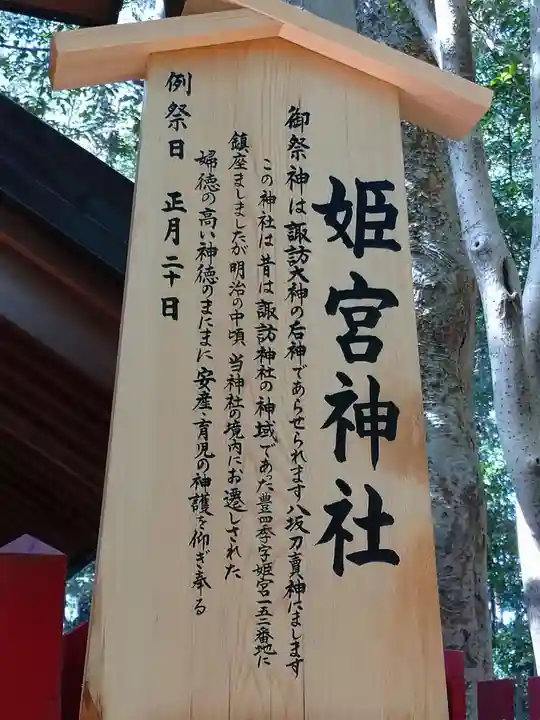 姫宮神社
御祭神は諏訪大神の后神であらせられます八坂刀賣神にまします
この神社は昔は諏訪神社の神域であった豊四季字姫宮一五二番地に
鎮座ましましたが明治の中頃当神社の境内にお遷しされた
婦徳の高い神徳のまにまに安産育児の神護を仰ぎ奉る
例祭日 正月二十日